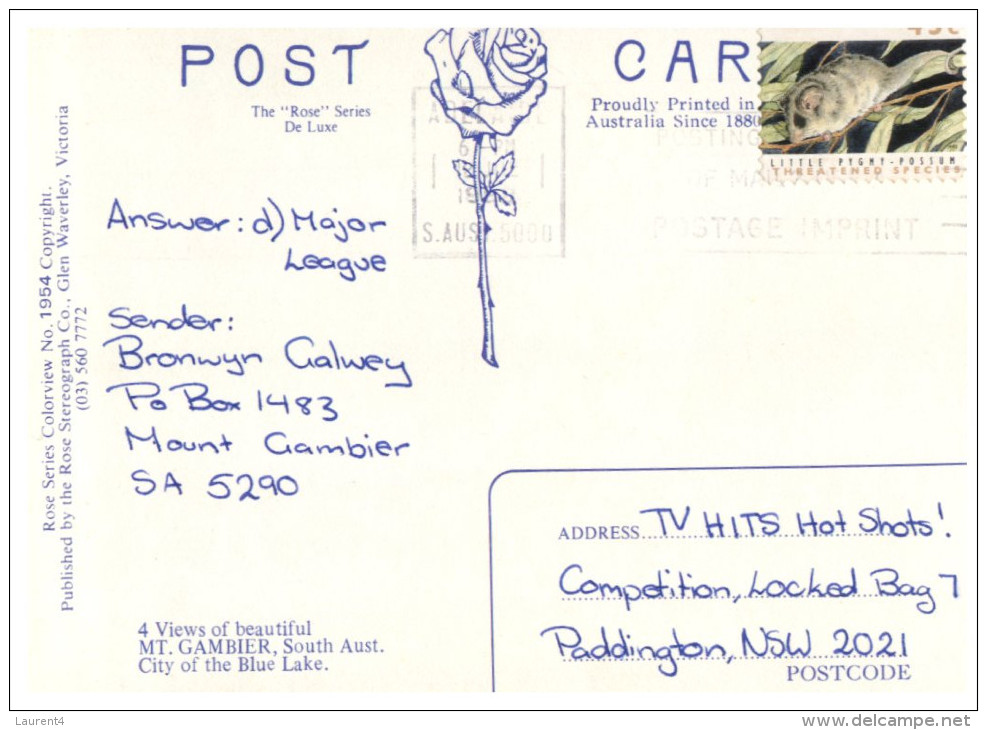 POST CAR
The "Rose" Series
De Luxe
Proudly Printed in
Australia Since 1880
45c
LITTLE PYGMY-POSSUM
THREATENED SPECIES
S.AUST.5000
POSTAGE IMPRINT
Rose Series Colorview No. 1954 Copyright.
Published by the Rose Stereograph Co., Glen Waverley, Victoria
(03) 560 7772
Answer: d) Major
League
Sender:
Bronwyn Galwey
Po Box 1483
Mount Gambier
SA 5290
ADDRESS TV HITS Hot Shots!
Competition, Locked Bag 7
Paddington, NSW 2021
POSTCODE
4 Views of beautiful
MT. GAMBIER, South Aust.
City of the Blue Lake.
Laurent4
www.delcampe.net